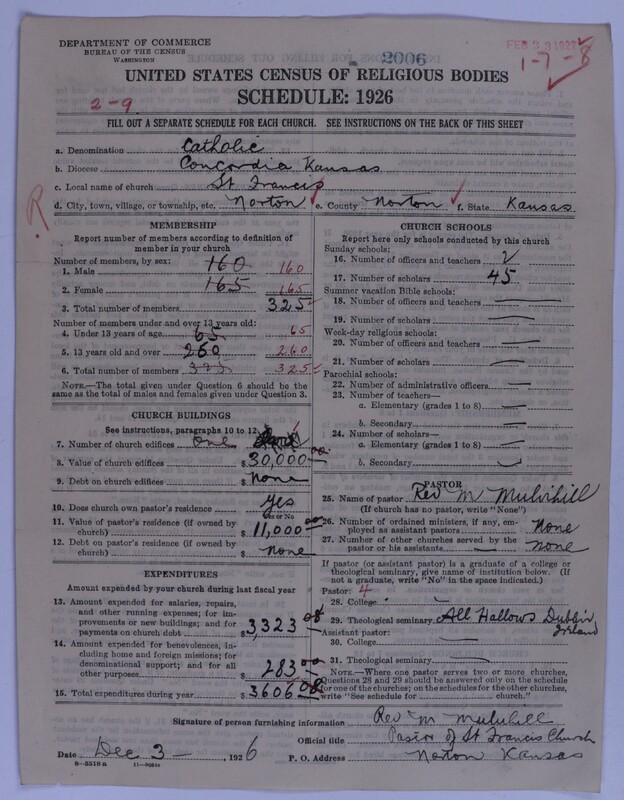 DEPARTMENT OF COMMERCE
BUREAU OF THE CENSUS
WASHINGTON
2006
FEB 23 1927
1-7-8
UNITED STATES CENSUS OF RELIGIOUS BODIES
SCHEDULE: 1926
2-9
FILL OUT A SEPARATE SCHEDULE FOR EACH CHURCH. SEE INSTRUCTIONS ON THE BACK OF THIS SHEET
a. Denomination Catholic
b. Diocese Concordia Kansas
c. Local name of church St Francis
d. City, town, village, or township, etc. Norton e. County Norton f. State Kansas
R
MEMBERSHIP
Report number of members according to definition of member in your church
Number of members, by sex:
1. Male 160 160
2. Female 165 165
3. Total number of members 325
Number of members under and over 13 years old:
4. Under 13 years of age 65 65
5. 13 years old and over 260 260
6. Total number of members 325 325
NOTE.—The total given under Question 6 should be the
same as the total of males and females given under Question 3.
CHURCH BUILDINGS
See instructions, paragraphs 10 to 12
7. Number of church edifices one 1
8. Value of church edifices $ 30,000 00
9. Debt on church edifices $ None
10. Does church own pastor's residence Yes
Yes or No
11. Value of pastor's residence (if owned by
church) $ 11,000 00
12. Debt on pastor's residence (if owned by
church) $ none
EXPENDITURES
Amount expended by your church during last fiscal year
13. Amount expended for salaries, repairs,
and other running expenses; for im-
provements or new buildings; and for
payments on church debt $ 3,323 08
14. Amount expended for benevolences, in-
cluding home and foreign missions; for
denominational support; and for all
other purposes $ 283 00
15. Total expenditures during year $ 3606 08
CHURCH SCHOOLS
Report here only schools conducted by this church
Sunday schools:
16. Number of officers and teachers 2
17. Number of scholars 45
Summer vacation Bible schools:
18. Number of officers and teachers
19. Number of scholars
Week-day religious schools:
20. Number of officers and teachers
21. Number of scholars
Parochial schools:
22. Number of administrative officers
23. Number of teachers—
a. Elementary (grades 1 to 8)
b. Secondary
24. Number of scholars—
a. Elementary (grades 1 to 8)
b. Secondary
PASTOR
25. Name of pastor Rev M Mulvihill
(If church has no pastor, write "None")
26. Number of ordained ministers, if any, em-
ployed as assistant pastors None
27. Number of other churches served by the
pastor or his assistants none
If pastor (or assistant pastor) is a graduate of a college or
theological seminary, give name of institution below. (If
not a graduate, write "No" in the space indicated.)
Pastor: 4
28. College
29. Theological seminary All Hallows Dublin
Ireland
Assistant pastor:
30. College
31. Theological seminary
NOTE.—Where one pastor serves two or more churches,
Questions 28 and 29 should be answered only on the schedule
for one of the churches; on the schedules for the other churches,
write "See schedule for church."
Signature of person furnishing information Rev M Mulvihill
Official title Pastor of St Francis Church
Date Dec 3 — , 1926 P. O. Address Norton Kansas
8—5518 a